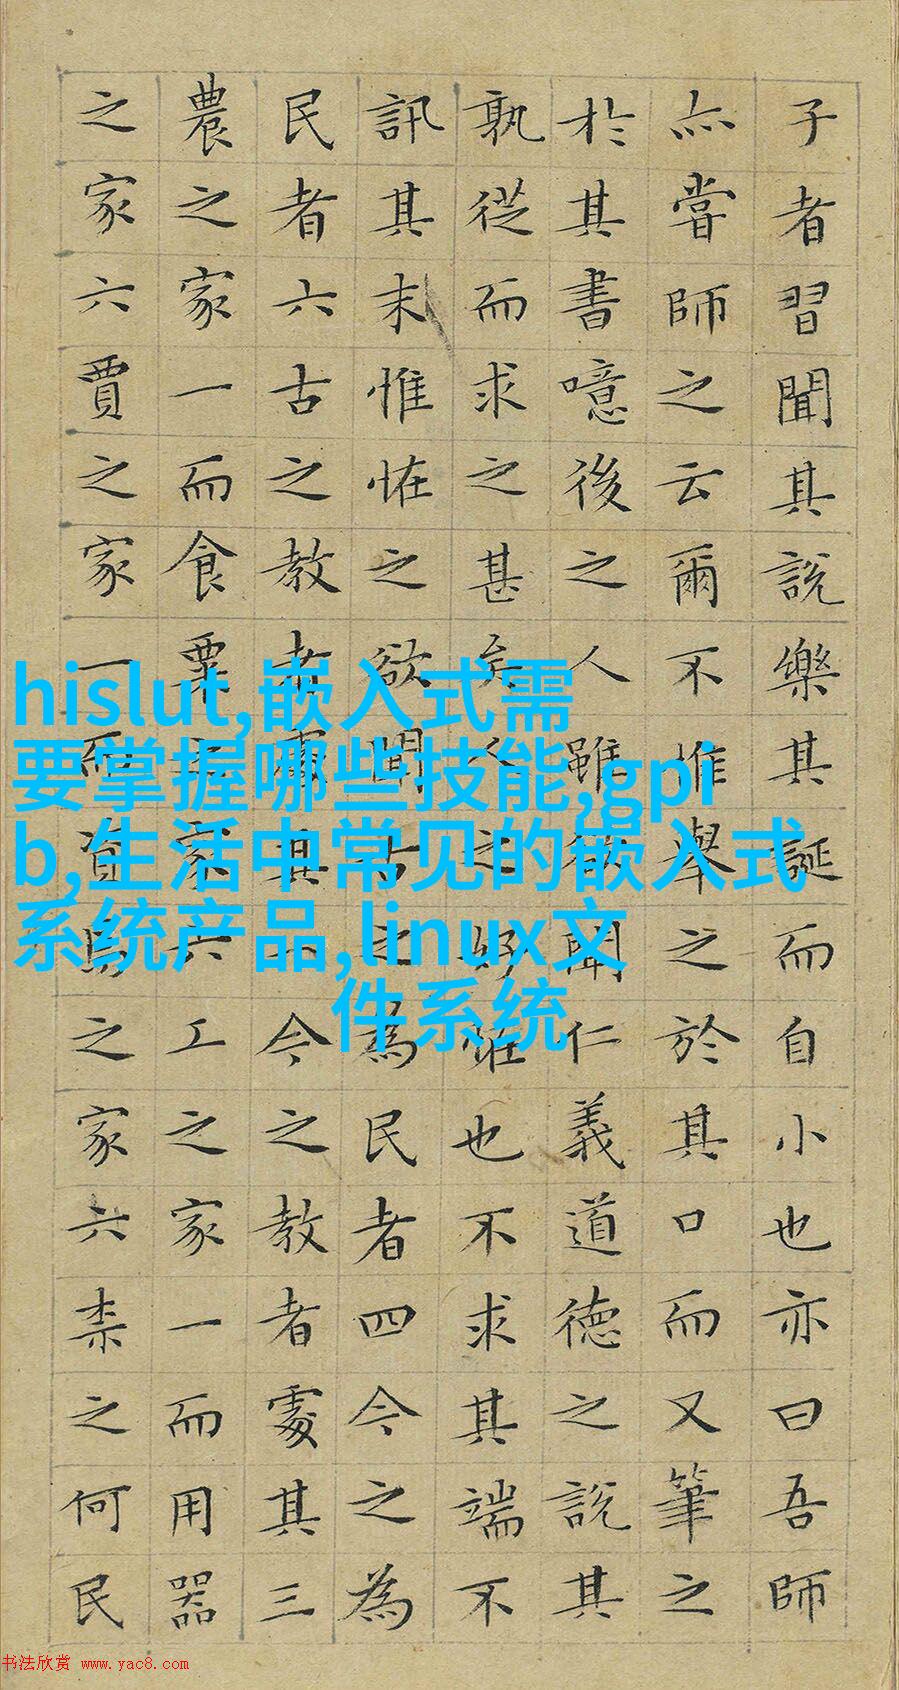 子者習聞其說樂其誕而自小也亦曰吾師
亦嘗師之云爾不惟舉之於其口而又筆之
於其書噫後之人雖欲聞仁義道德之說其
孰從而求之甚矣人之好恠也不求其端不
訊其末惟恠之欲聞古之為民者四今之為
民者六古之教者處其一今之教者處其三
農之家一而食粟之家六工之家一而用器
之家六賈之家一而資焉之家六柰之何民
hislut,嵌入式需
要掌握哪些技能,gpi
b,生活中常见的嵌入式
系统产品,linux文
件系统
书法欣赏 www.yac8.com